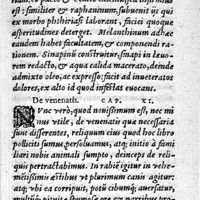 ex morbo phthiriasi laborant, faciei quoque
asperitudines deterget. Melanthinum adhæc
eandem habet facultatem, & componendi ra-
tionem. Sinapinū construitur, sinapi in leuo-
rem redacto, & aqua calida macerato, deinde
admixto oleo, ac expresso: facit ad inueterato
dolores, ex alto id quod infestat euocans.
De venenatis. CAP. XI.
Nunc verò, quod nouissimum est, nec mi
nus vtile, de venenatis quæ necessaria
sunt differentes, reliquum eius quod hoc libro
polliciti sumus, persoluamus, atq; initio à fami
liari nobis animali sumpto, deinceps de reli-
quis pertractabimus. In rabiē igitur in vehe-
mētissimis æstibus vt plurimum canis agitur:
atq; vbi ea corripuit, potū cibumq; auersatur,